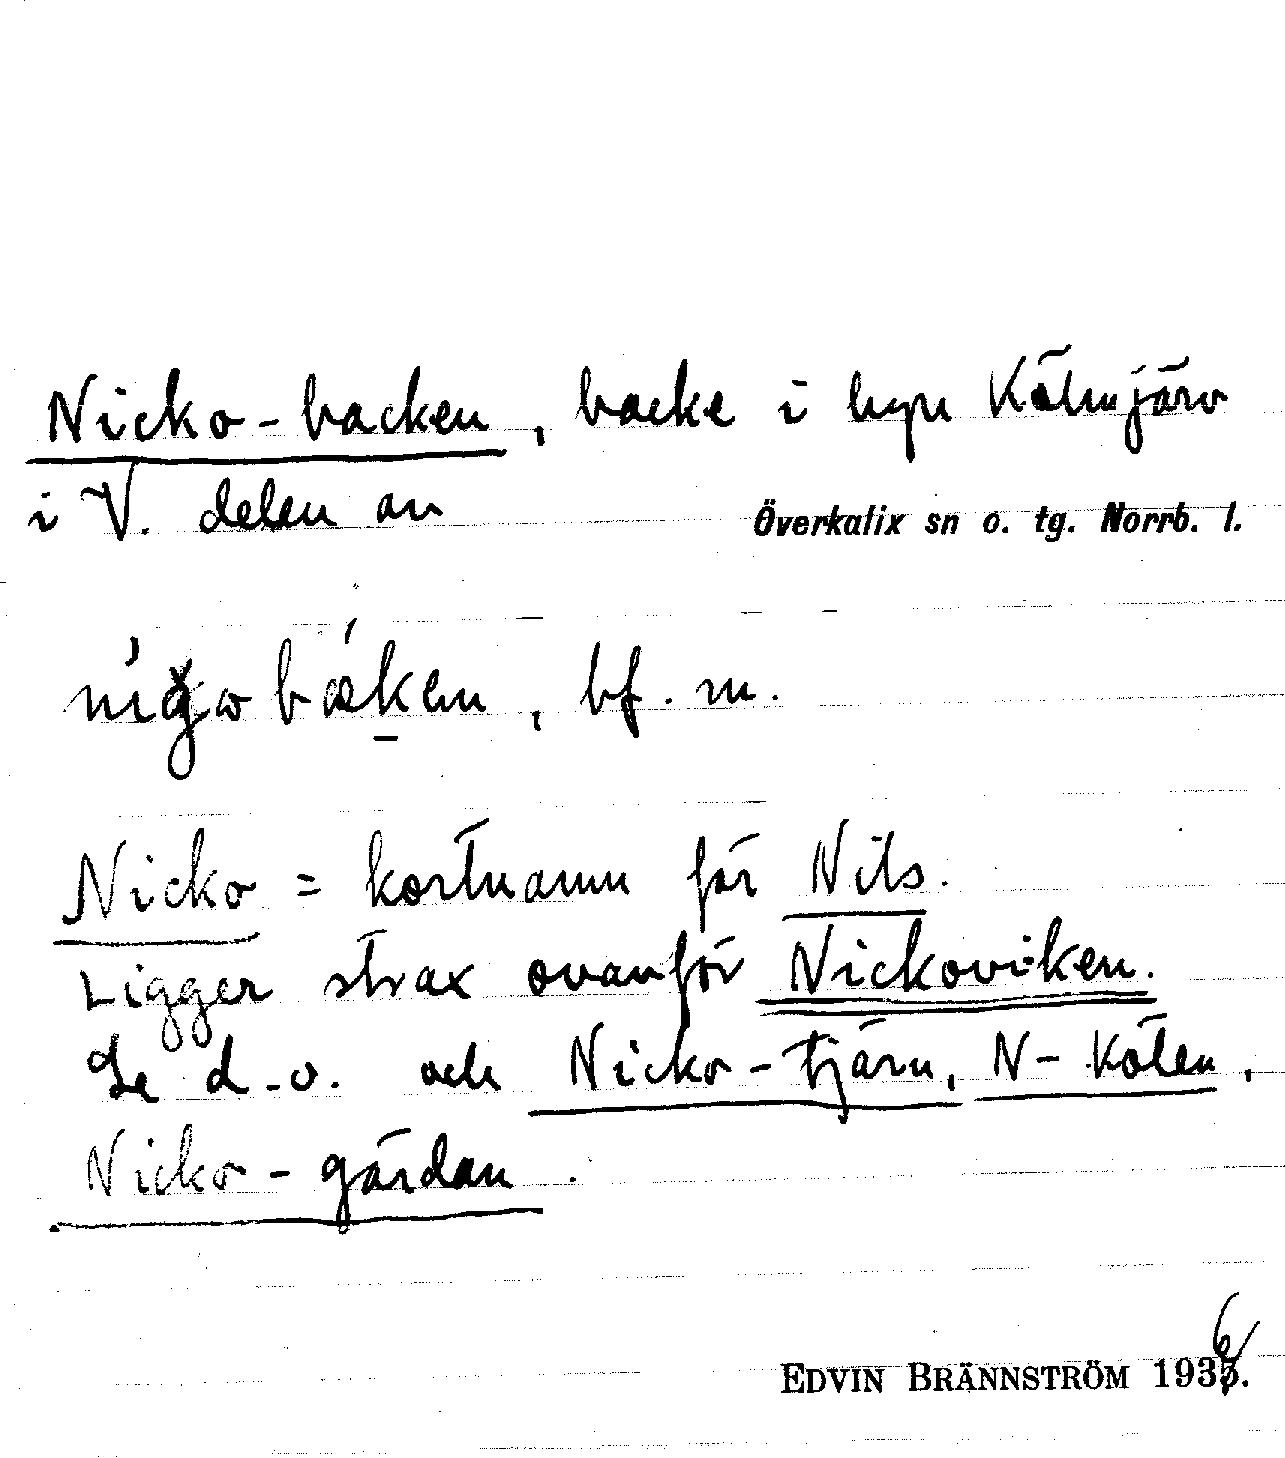 Nicko-backen, backe i byn Kölmjärv
i V. delen av
Överkalix sn o. tg. Norrb. l.
bf. m.
Nicko = kortnamn för Nils.
Ligger strax ovanför Nickoviken.
Se d.o. och Nicko-tjärn, N-kölen,
Nicko-gärdan.
EDVIN BRÄNNSTRÖM 1936.